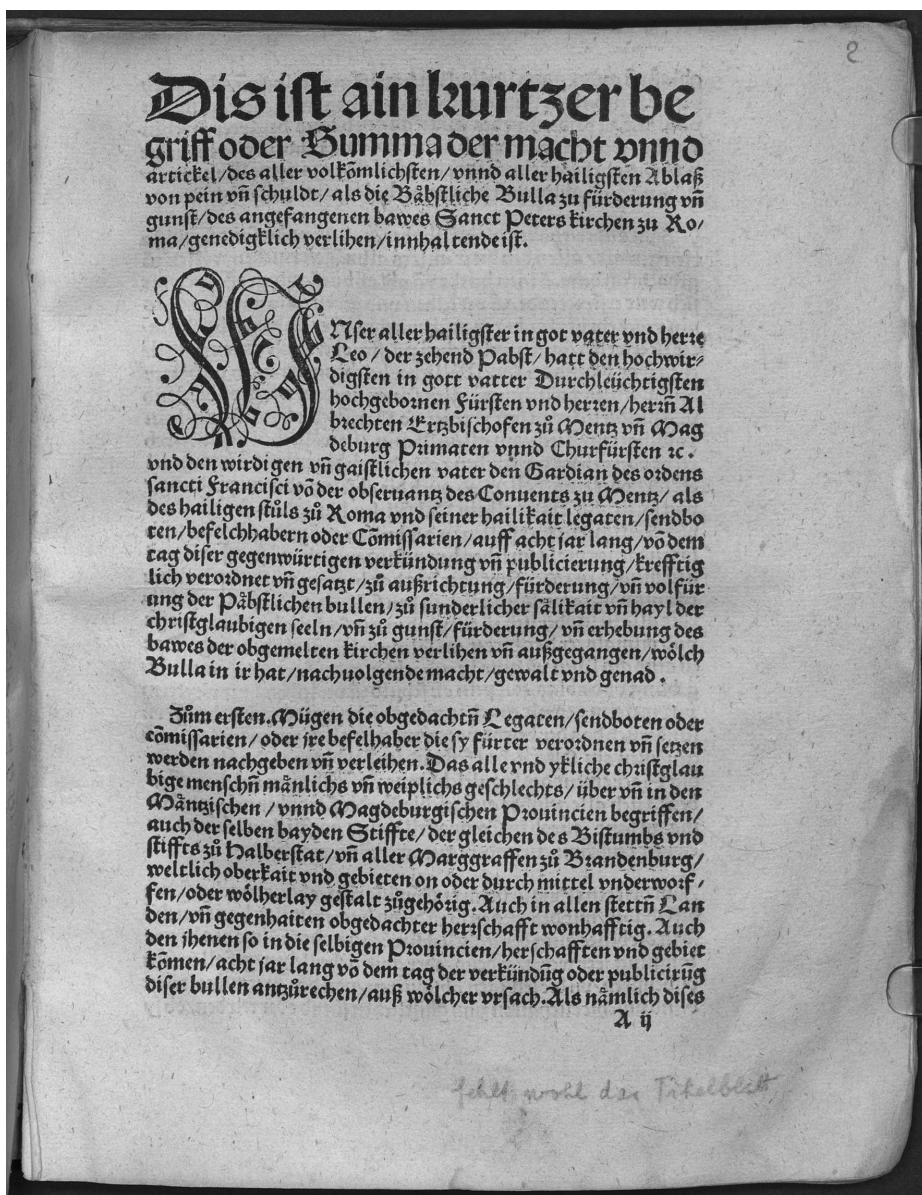 2
Dis ist ain kurtzer be
griff oder Summa der macht vnnd
artickel/des aller volkõmlichsten/vnnd aller hailigsten Ablaß
von pein vñ schuldt/als die Bäbstliche Bulla zu fürderung vñ
gunst/des angefangenen bawes Sanct Peters kirchen zu Ro-
ma/genedigklich verlihen/innhaltende ist.
VNser aller hailigster in got vater vnd herre
Leo/der zehend Pabst/hatt den hochwir-
digsten in gott vatter Durchleüchtigsten
hochgebornen Fürsten vnd herren/herrñ Al
brechten Ertzbischofen zů Mentz vñ Mag
deburg Primaten vnnd Churfürsten ꝛc.
vnd den wirdigen vñ gaistlichen vater den Gardian des ordens
sancti Francisci võ der obseruantz des Conuents zu Mentz/als
des hailigen stůls zů Roma vnd seiner hailikait legaten/sendbo
ten/befelchhabern oder Cõmissarien/auff acht jar lang/võ dem
tag diser gegenwürtigen verkündung vñ publicierung/krefftig
lich verordnet vñ gesatzt/zů außrichtung/fürderung/vñ volfür
ung der Päbstlichen bullen/zů sunderlicher sälikait vñ hayl der
christglaubigen seeln/vñ zů gunst/fürderung/vñ erhebung des
bawes der obgemelten kirchen verlihen vñ außgegangen/wölch
Bulla in ir hat/nachuolgende macht/gewalt vnd genad.
Zům ersten. Mügen die obgedachtñ Legaten/sendboten oder
cõmissarien/oder jre befelhaber die sy fürter verordnen vñ setzen
werden nachgeben vñ verleihen. Das alle vnd ykliche christglau
bige menschñ mänlichs vñ weiplichs geschlechts/über vñ in den
Mäntzischen/vnnd Magdeburgischen Prouincien begriffen/
auch der selben bayden Stiffte/der gleichen des Bistumbs vnd
stiffts zů Halberstat/vñ aller Marggraffen zů Brandenburg/
weltlich oberkait vnd gebieten on oder durch mittel vnderworf-
fen/oder wölherlay gestalt zůgehörig. Auch in allen stettñ Lan
den/vñ gegenhaiten obgedachter herrschafft wonhafftig. Auch
den jhenen so in die selbigen Prouincien/herschafften vnd gebiet
kõmen/acht jar lang võ dem tag der verkündũg oder publicirũg
diser bullen antzůrechen/auß wölcher vrsach. Als nämlich dises
A ij
fehlt wohl das Titelblatt